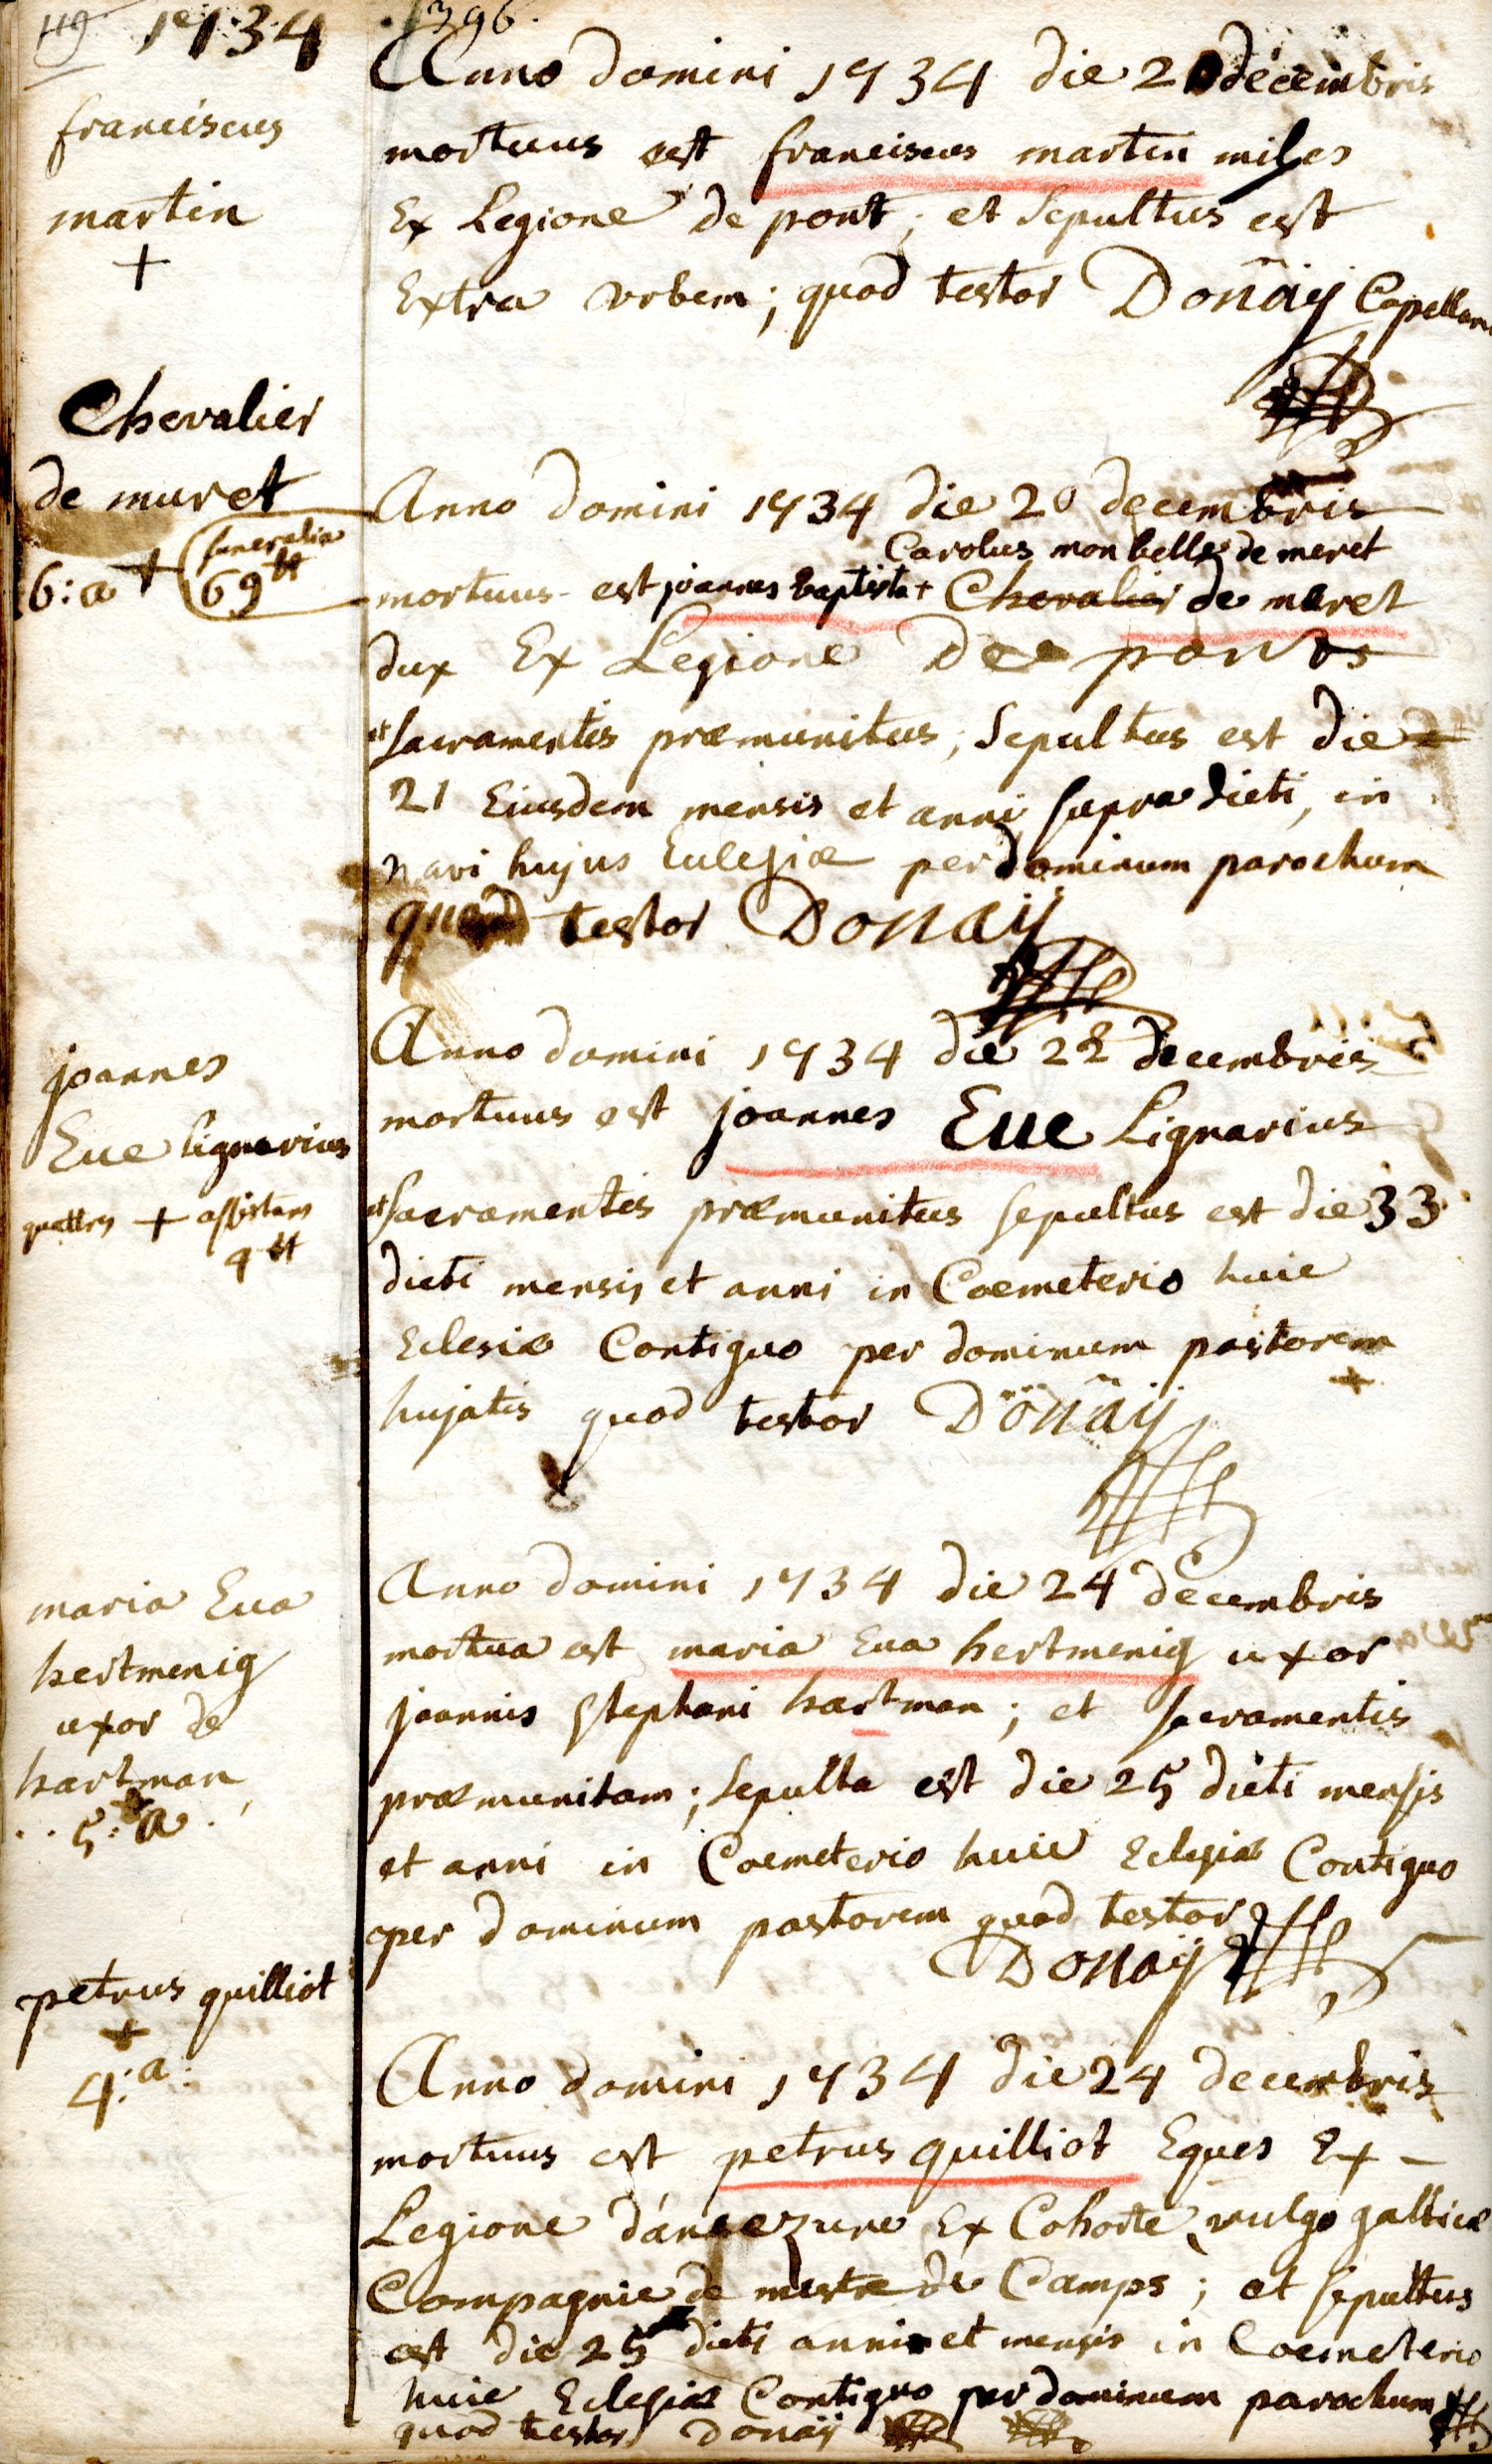 119 1734
franciscus
martin
+
396.
Anno domini 1734 die 20 decembris
mortuus est franciscus martin miles
Ex Legione de pont; et Sepultus est
Extra vrbem; quod testor Donäÿ Capellan
Chevalier
de muret
6:a + funeralia
69 tt
Anno domini 1734 die 20 decembris
Carolus monbelle de meret
mortuus est joannes baptista + Chevalier de meret
dux Ex Legione De ponts
et sacramentis præmunitus, Sepultus est die
21 Eiusdem mensis et anni supradicti, in
navi hujus Eulesiæ per dominum parochum
quod testor Donaÿ
joannes
Eue lignarius
+ assistans
4 tt
Anno domini 1734 die 22 decembris
mortuus est joannes Eue Lignarius
et sacramentis præmunitus sepultus est die 33
dicti mensis et anni in Coemeterio huic
Eclesiæ Contiguo per dominum pastorem
hujatis quod testor Donaÿ
maria Eua
hertmenig
uxor de
hartman
5:a
Anno domini 1734 die 24 decembris
mortua est maria Eua hertmenig uxor
joannis stephani hartman; et sacramentis
præmunitam; sepulta est die 25 dicti mensis
et anni in Coemeterio huic Eclesiæ Contiguo
per dominum pastorem quod testor
Donaÿ
petrus quilliot
+
4:a:
Anno domini 1734 die 24 decembris
mortuus est petrus quilliot Eques Ex
Legione d'ancezune Ex Cohorte vulgo gallicæ
Compagnie de mestre de Camps; et sepultus
est die 25 dicti anni et mensis in Coemeterio
huic Eclesiæ Contiguo per dominum parochum
quod testor Donaÿ